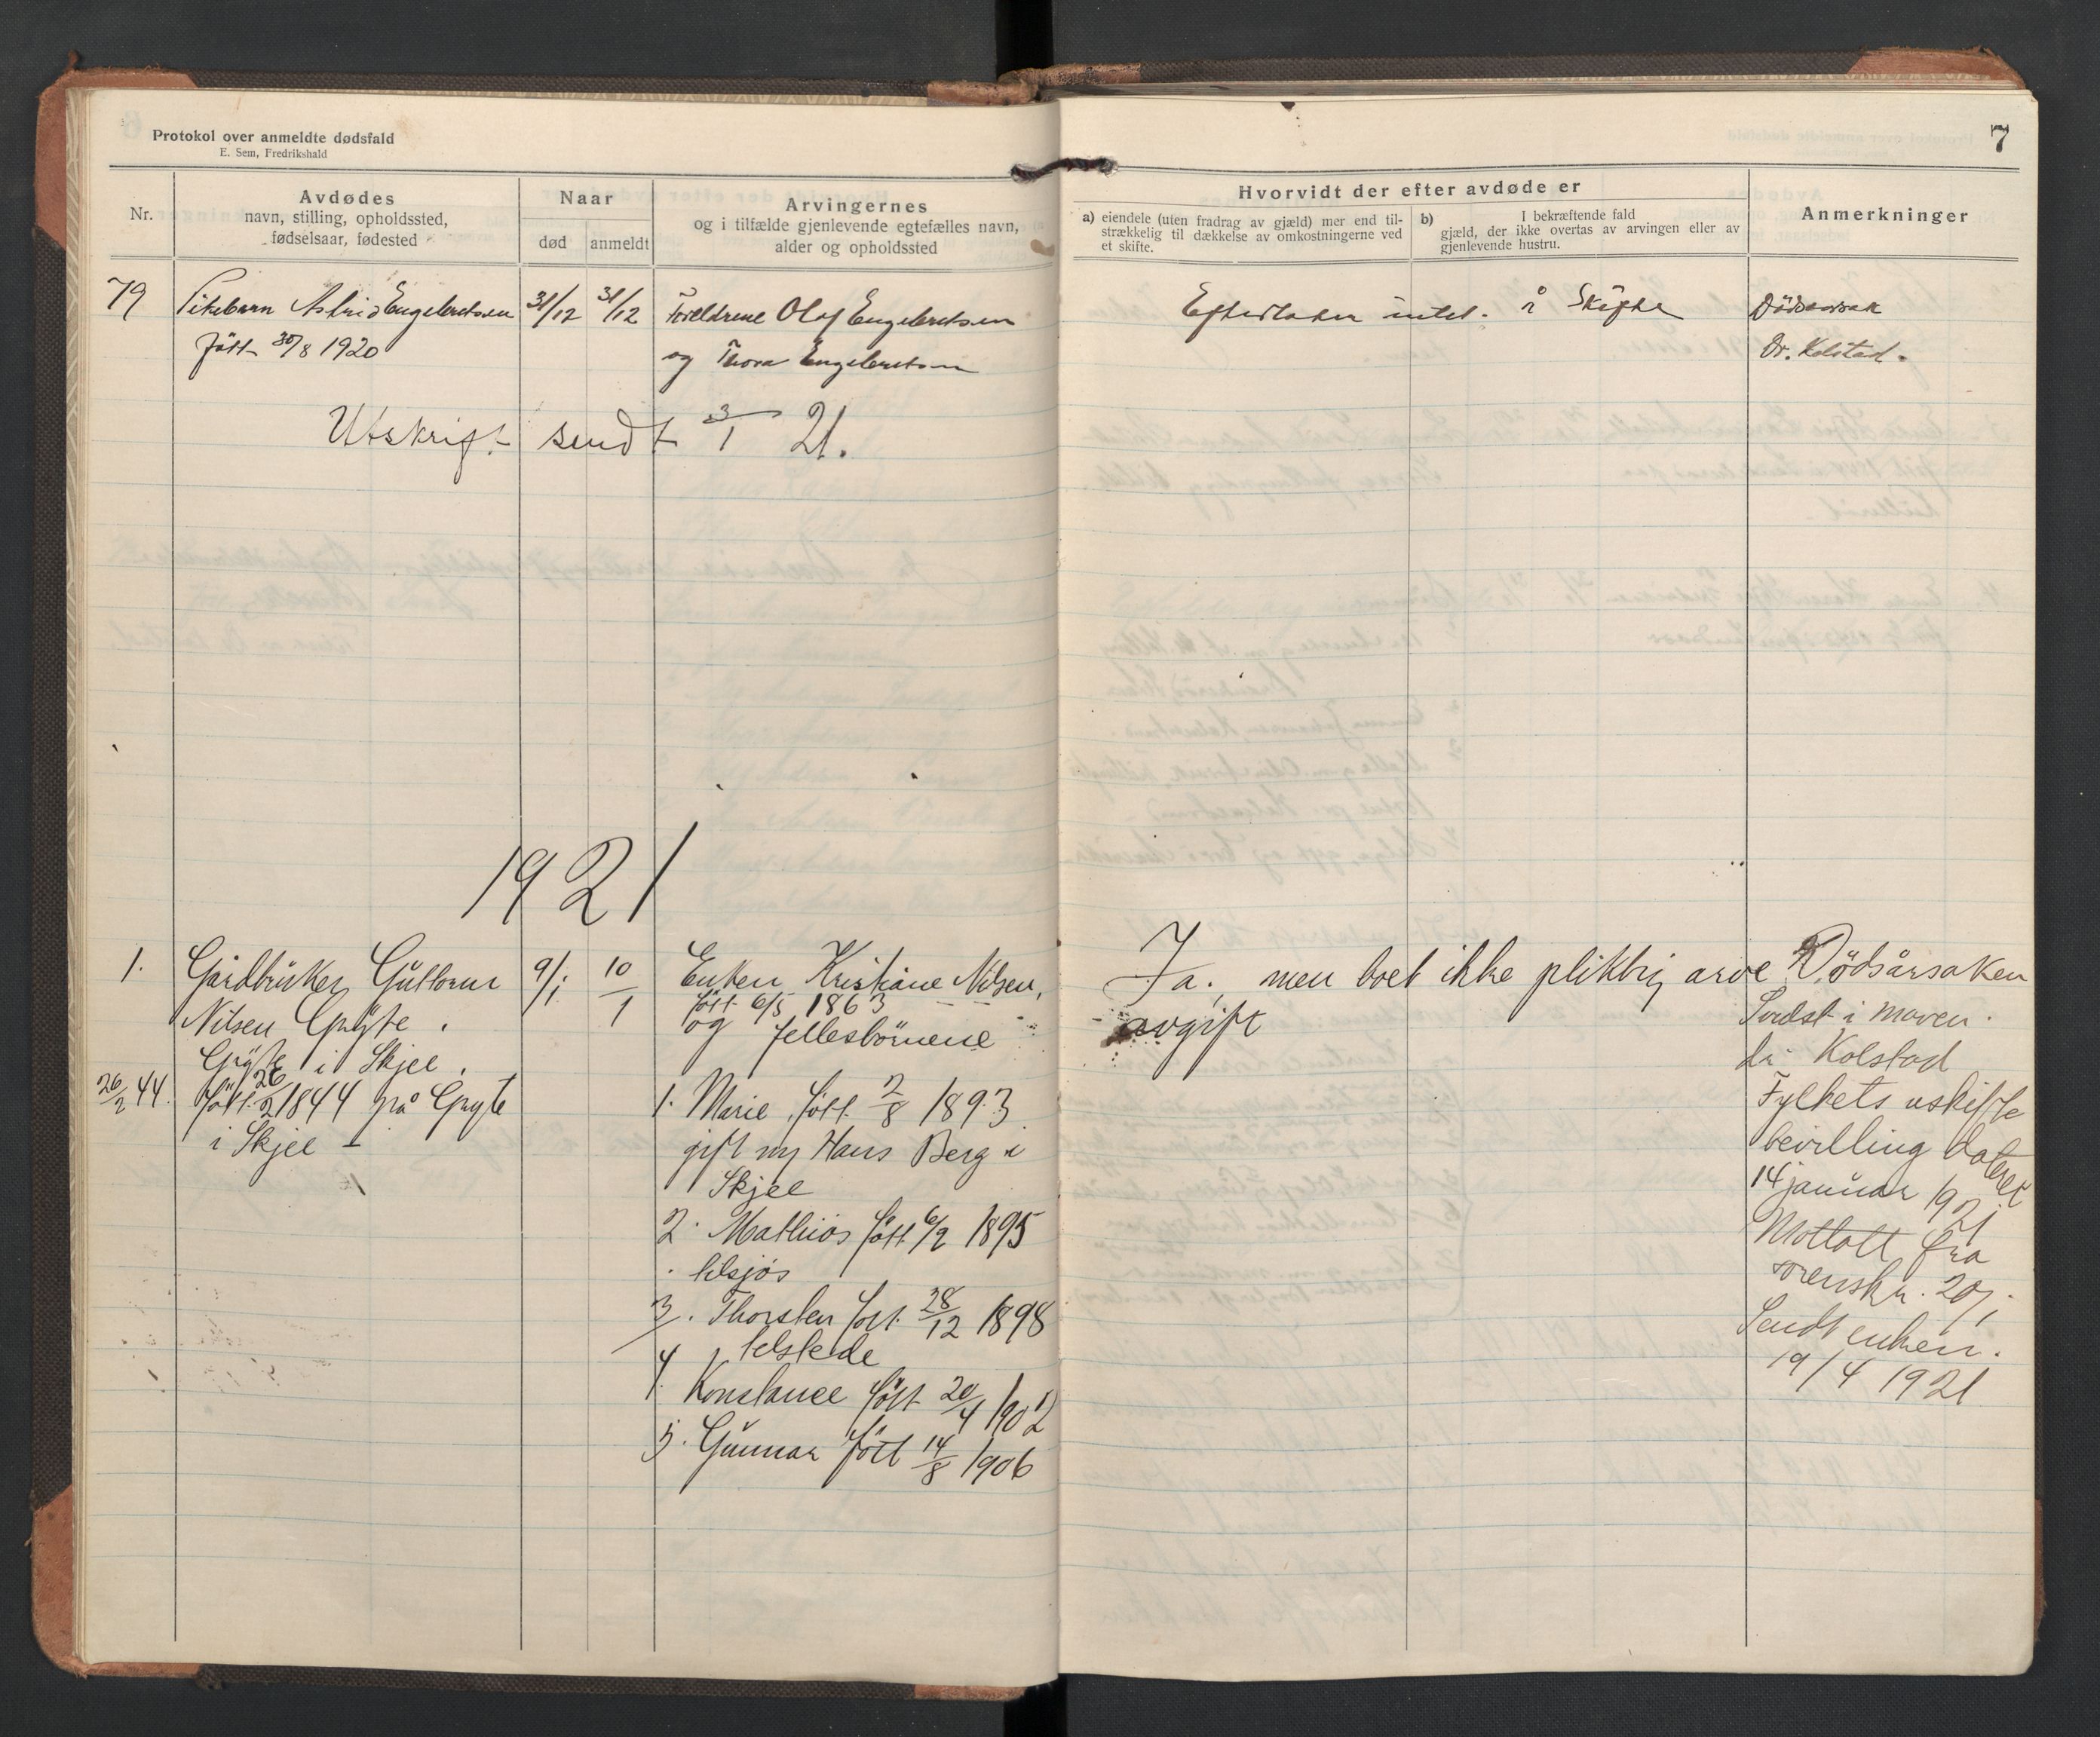 Protokol over anmeldte dødsfald
E. Sem, Fredrikshald
7
Nr.
Avdødes
navn, stilling, opholdssted,
fødselsaar, fødested
Naar
død
anmeldt
Arvingernes
og i tilfælde gjenlevende egtefælles navn,
alder og opholdssted
Hvorvidt der efter avdøde er
a) eiendele (uten fradrag av gjæld) mer end til-
strækkelig til dækkelse av omkostningerne ved
et skifte.
b) I bekræftende fald
gjæld, der ikke overtas av arvingen eller av
gjenlevende hustru.
Anmerkninger
79
Pikebarn Astrid Engebretsen
født 30/8 1920
31/12
31/12
Foreldrene Olaf Engebretsen
og Thora Engebretsen
Efterlader intet å Skifte
Dödsorsak
Dr. Kolstad.
Utskrift sendt 3/1 21.
1921
1.
Gårdbruker Guttorm
Nilsen Gryte.
Gryte i Skjee.
26/2 44.
født 26/2 1844 på Gryte
i Skjee
9/1
10/1
Enken Kristiane Nilsen,
født 6/5 1863
og fellesbörnene
1. Marie født 2/8 1893
gift m/ Hans Berg i
Skjee
2. Mathias født 6/2 1895
tilsjøs
3. Thorsten født 28/12 1898
tilstede
4. Konstance født 20/4 1902
5. Gunnar født 14/8 1906
Ja, men boet ikke pliktig arve
avgift
Dödsårsaken
i maven.
dr. Kolstad
Fylkets uskifte
bevilling datert
14 januar 1921
Mottatt fra
sorenskr. 20/1.
Sendt enken.
19/4 1921